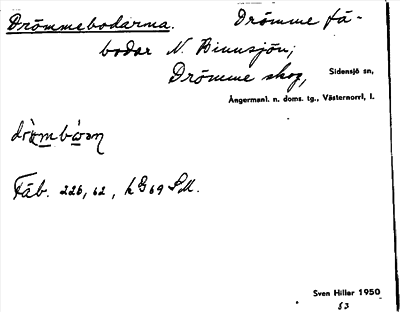 Drömmebodarna. Drömme fä-
bodar N. Binnsjön;
Drömme skog, Sidensjö sn,
Ångermanl. n. doms. tg., Västernorrl. l.
Fäb. 226, 62, h G 69 SM.
Sven Hiller 1950
53